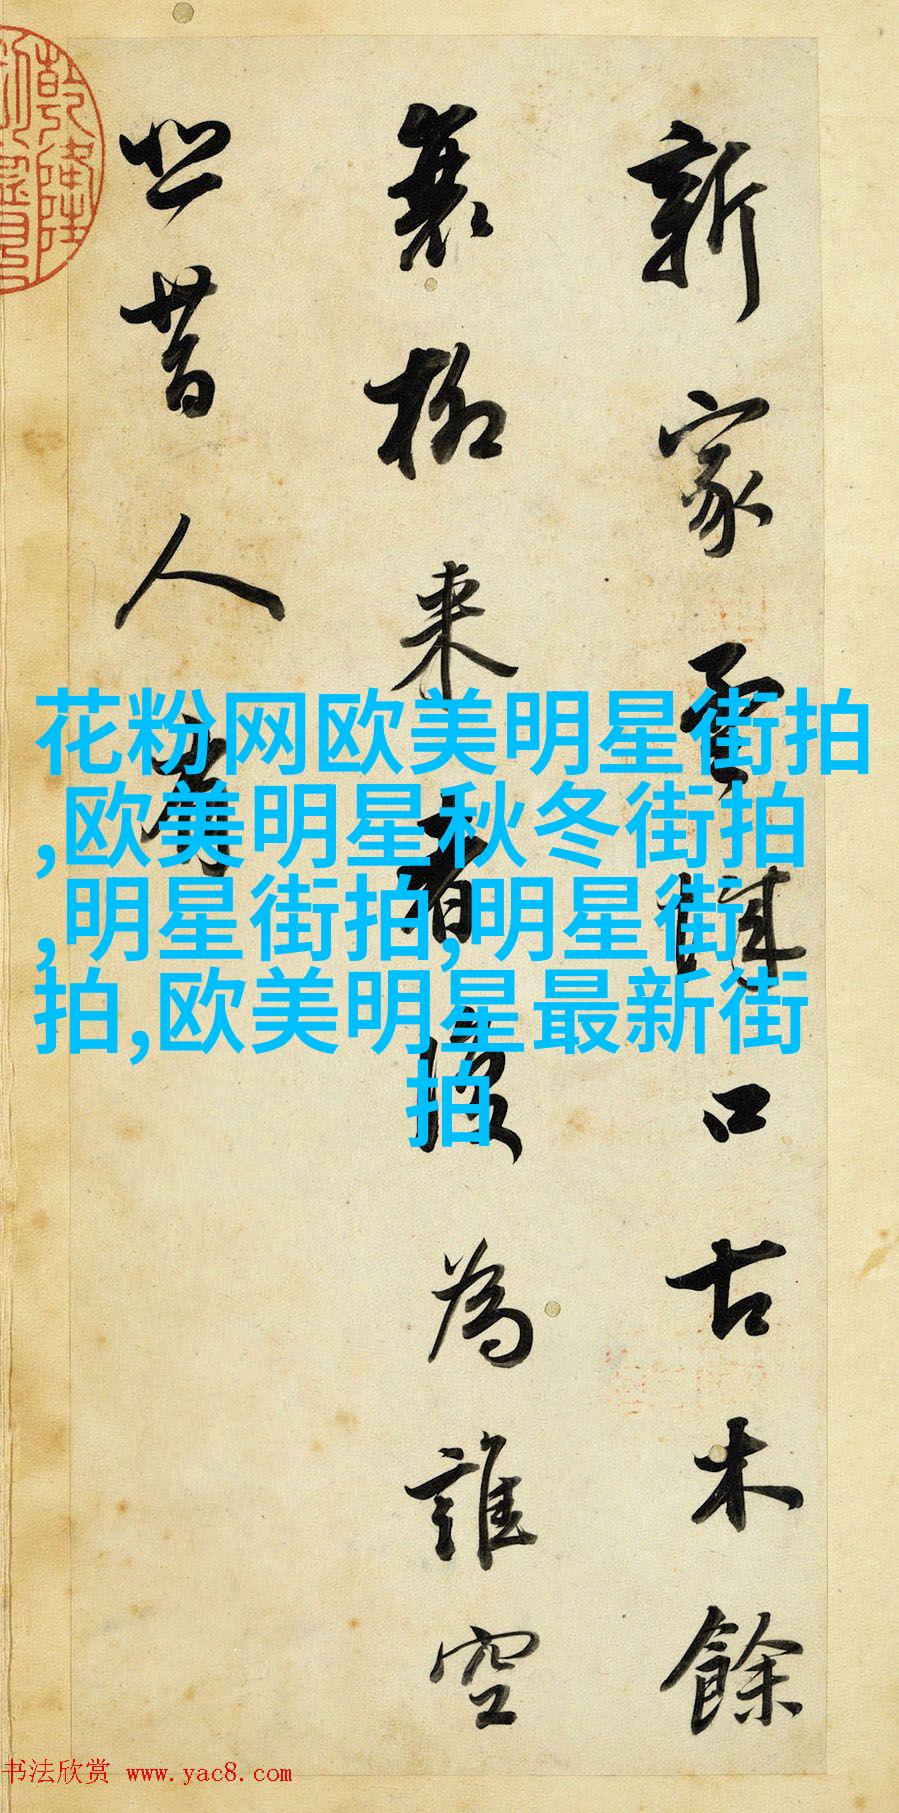 新家孟城口古木餘
衰柳来者復為誰空
悲昔人有
乾隆
花粉网欧美明星街拍
,欧美明星秋冬街拍
,明星街拍,明星街
拍,欧美明星最新街
拍
书法欣赏 www.yac8.com